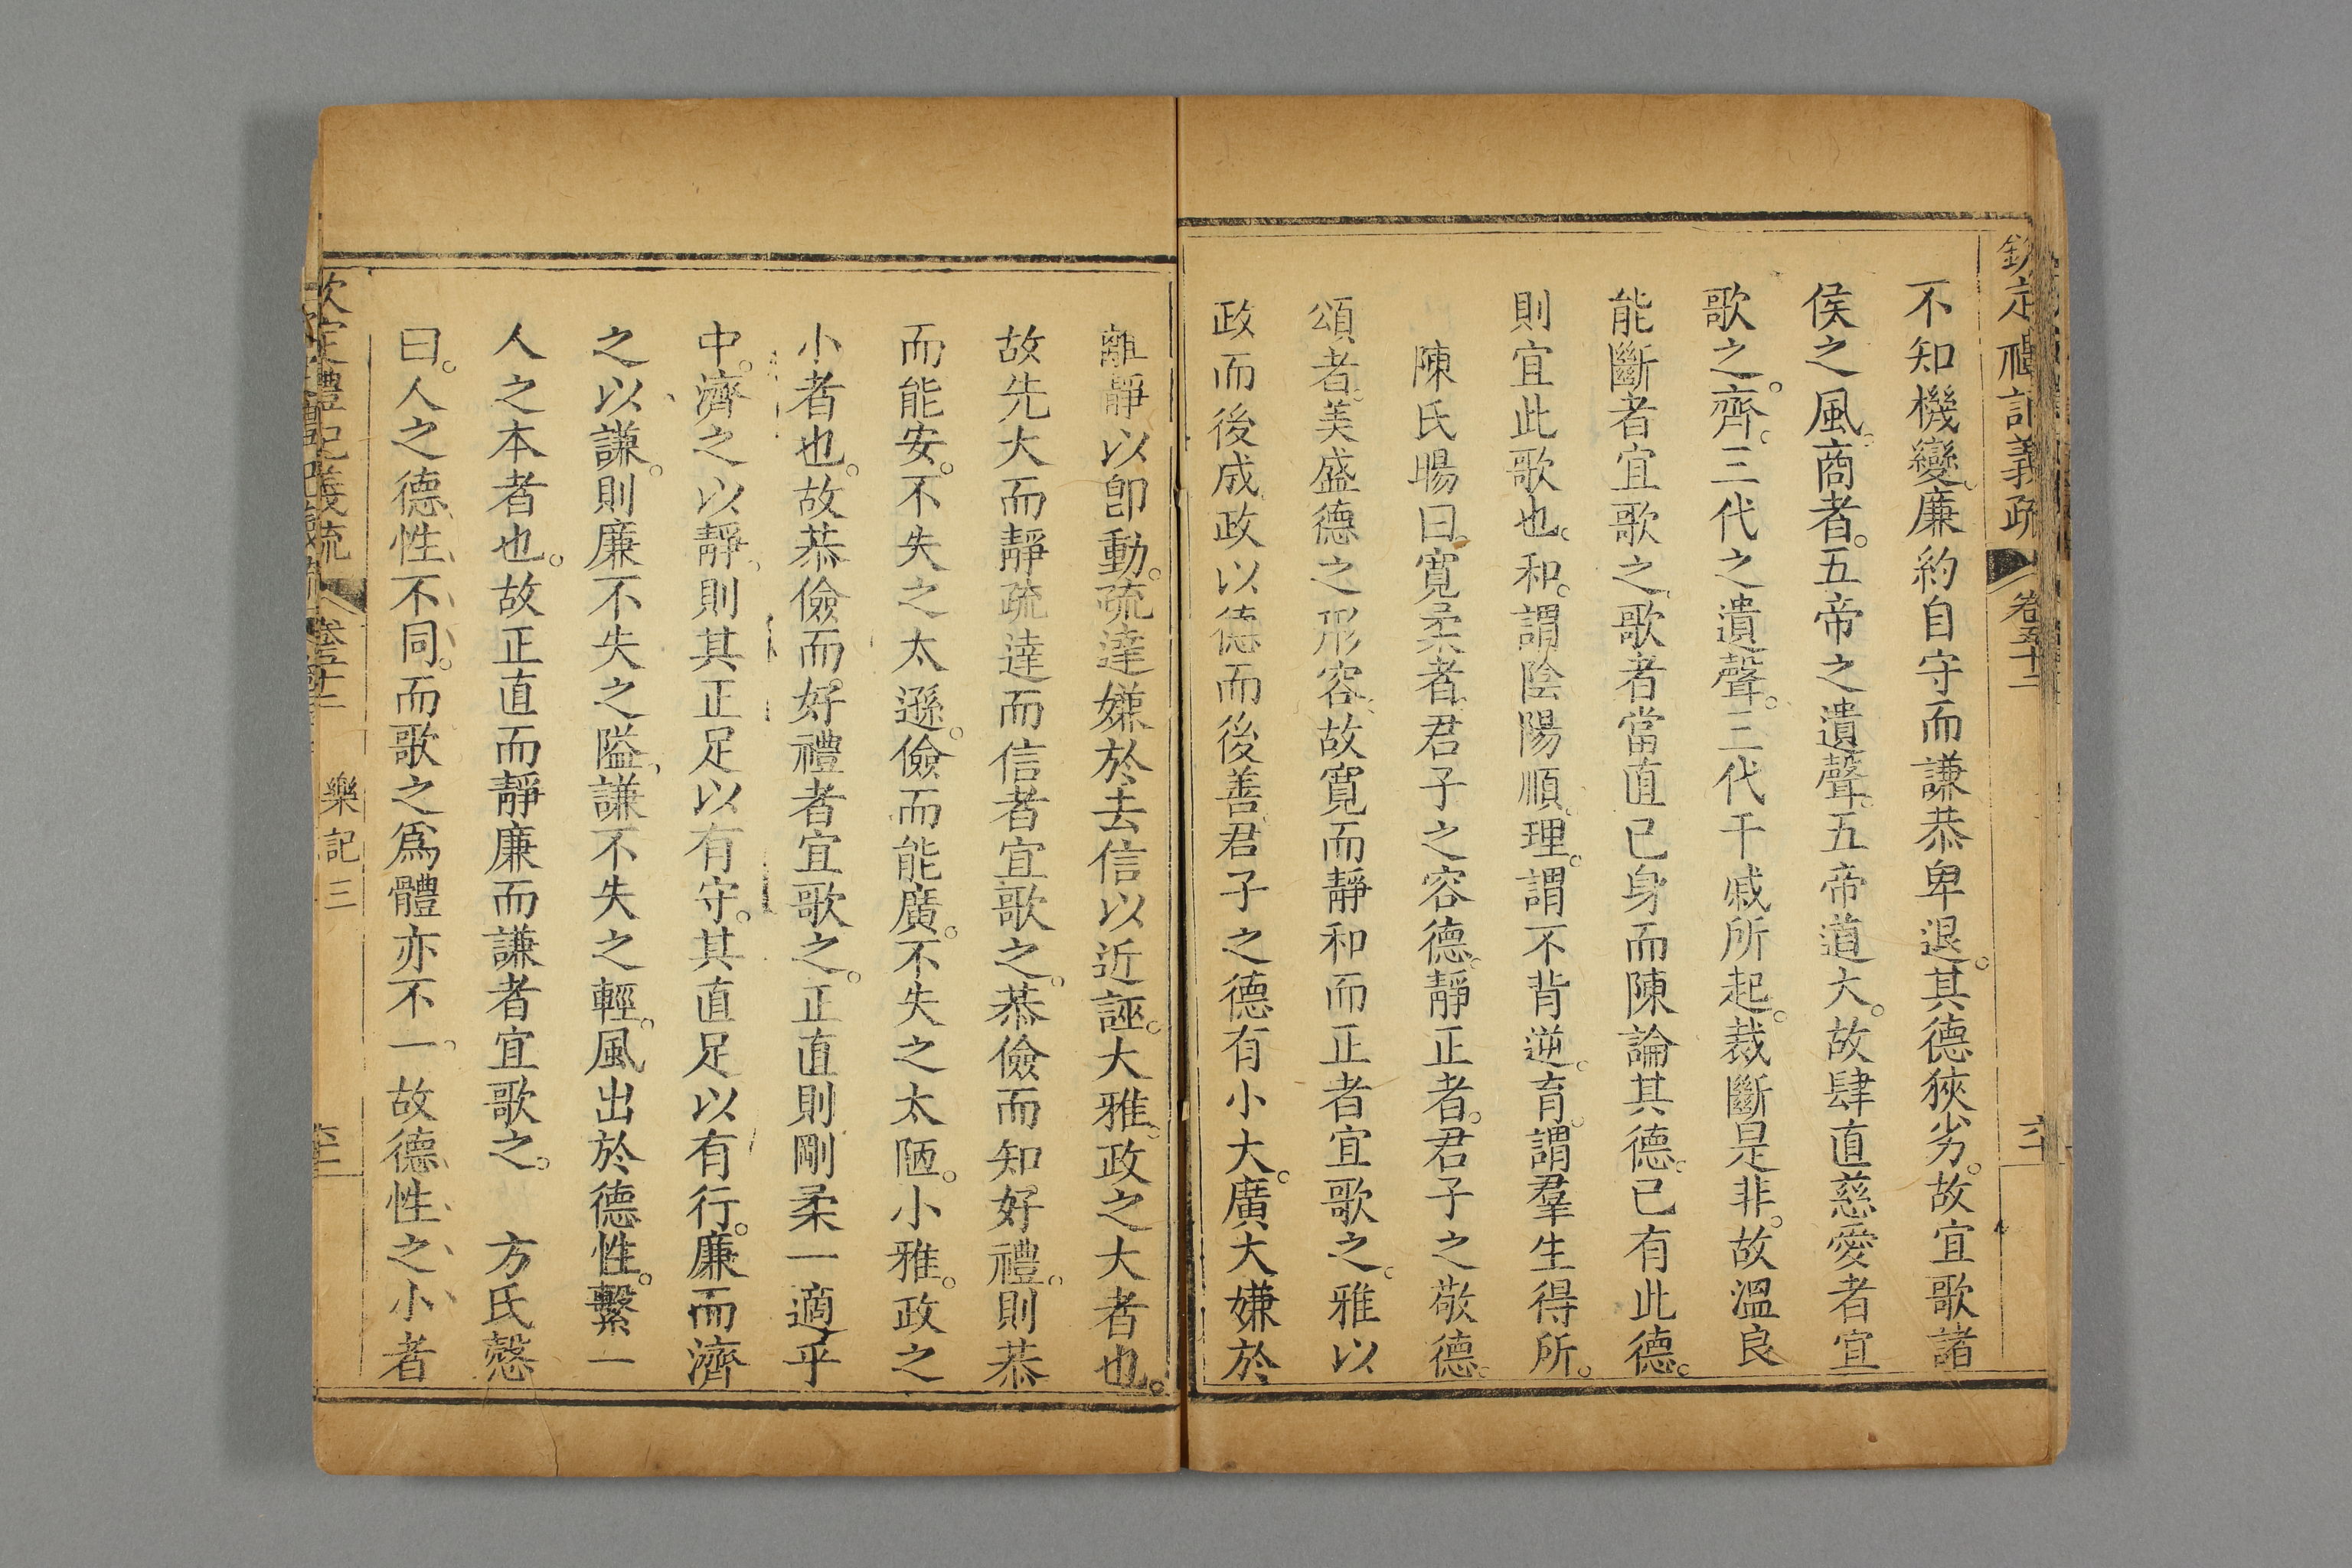 欽定禮記義疏 卷五十二 六十
不知機變廉約自守而謙恭卑退其德狹劣故宜歌諸
侯之風商者五帝之遺聲五帝道大故肆直慈愛者宜
歌之齊三代之遺聲三代干戚所起裁斷是非故溫良
能斷者宜歌之歌者當直己身而陳論其德己有此德
則宜此歌也和謂陰陽順理謂不背逆育謂羣生得所
陳氏暘曰寬柔者君子之容德靜正者君子之敬德
頌者美盛德之形容故寬而靜和而正者宜歌之雅以
政而後成政以德而後善君子之德有小大廣大嫌於
離靜以卽動疏達嫌於去信以近誣大雅政之大者也
故先大而靜疏達而信者宜歌之恭儉而知好禮則恭
而能安不失之太遜儉而能廣不失之太陋小雅政之
小者也故恭儉而好禮者宜歌之正直則剛柔一適乎
中濟之以靜則其正足以有守其直足以有行廉而濟
之以謙則廉不失之隘謙不失之輕風出於德性繫一
人之本者也故正直而靜廉而謙者宜歌之 方氏慤
曰人之德性不同而歌之爲體亦不一故德性之小者
欽定禮記義疏 卷五十二 樂記三